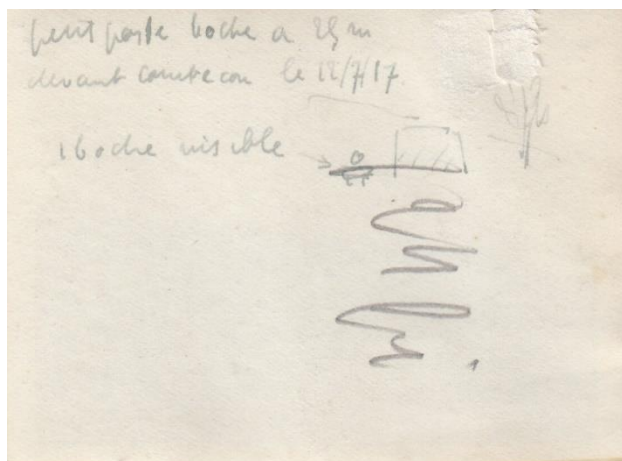 petit poste boche a 25 m
devant Courtecon le 12/7/17
1 boche visible